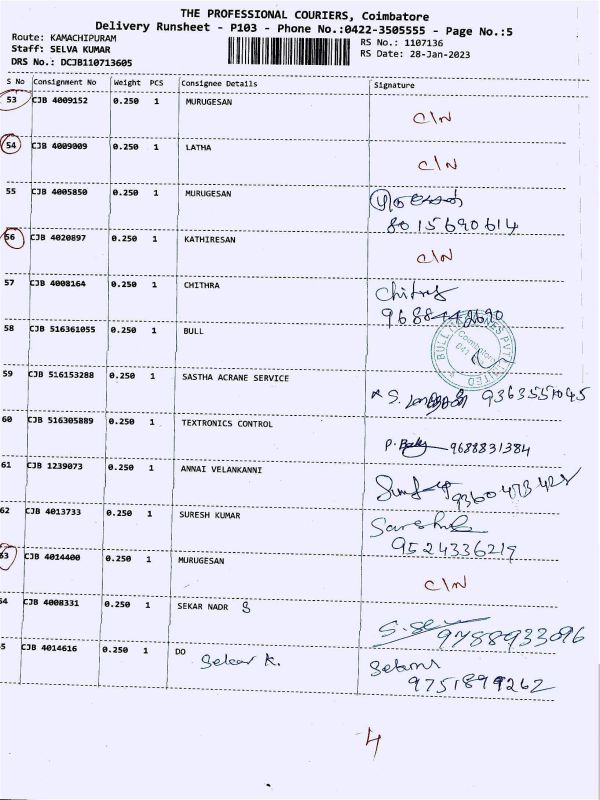 THE PROFESSIONAL COURIERS, Coimbatore
Delivery Runsheet - P103 - Phone No.:0422-3505555 - Page No.:5
Route: KAMACHIPURAM
RS No.: 1107136
Staff: SELVA KUMAR
RS Date: 28-Jan-2023
DRS No.: DCJB110713605
S No Consignment No Weight PCS Consignee Details Signature
53 CJB 4009152 0.250 1 MURUGESAN C/N
54 CJB 4009009 0.250 1 LATHA C/N
55 CJB 4005850 0.250 1 MURUGESAN
8015690614
56 CJB 4020897 0.250 1 KATHIRESAN C/N
57 CJB 4008164 0.250 1 CHITHRA Chithra
58 CJB 516361055 0.250 1 BULL
59 CJB 516153288 0.250 1 SASTHA ACRANE SERVICE S. 9363551045
60 CJB 516305889 0.250 1 TEXTRONICS CONTROL P. 9688831384
61 CJB 1239073 0.250 1 ANNAI VELANKANNI
62 CJB 4013733 0.250 1 SURESH KUMAR
9524336219
63 CJB 4014400 0.250 1 MURUGESAN C/N
54 CJB 4008331 0.250 1 SEKAR NADR S
9788933096
5 CJB 4014616 0.250 1 DO Sekar K.
9751899262
4